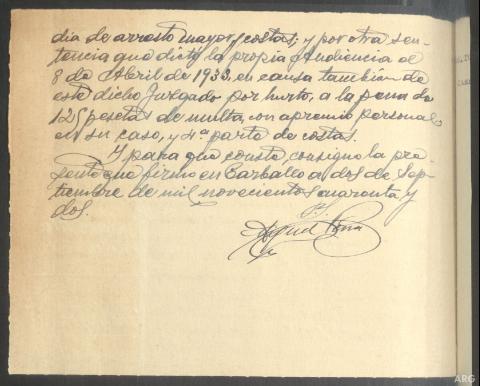 dia de arresto mayor y costas; y por otra sen-
tencia que dictó la propia Audiencia el
8 de Abril de 1933, en causa tambien de
este dicho Juzgado por hurto, a la pena de
125 pesetas de multa, con apremio personal
en su caso, y 4ª parte de costas.
Y para que conste, consigno la pre-
sente que firmo en Carballo a dos de Sep-
tiembre de mil novecientos cuarenta y
dos.
ARG